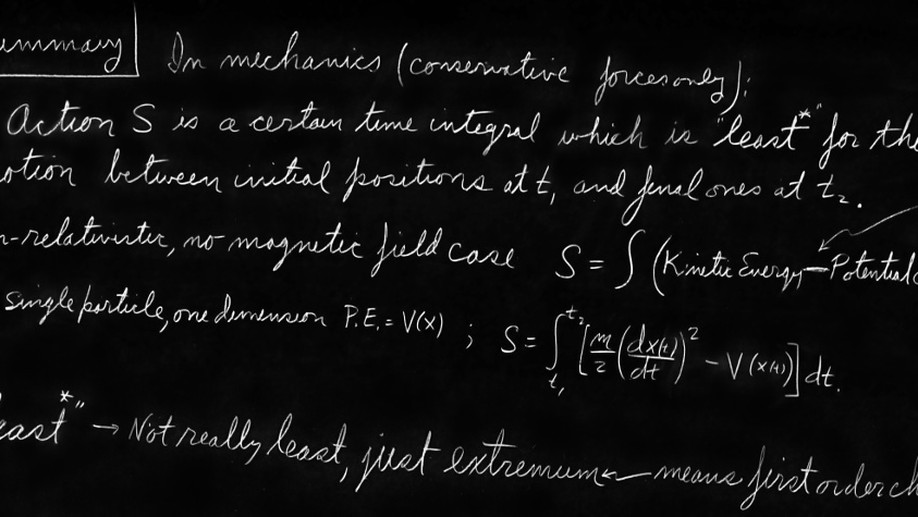 ummary In mechanics (conservative forces only);
Action S is a certain time integral which is "least*" for the
otion between initial positions at t₁ and final ones at t₂.
n-relativistic, no magnetic field case S = ∫ (Kinetic Energy – Potential
single particle, one dimension P.E. = V(x) ; S = ∫_{t₁}^{t₂} [m/2 (dx(t)/dt)² – V(x(t))] dt.
east*" → Not really least, just extremum ← means first order ch